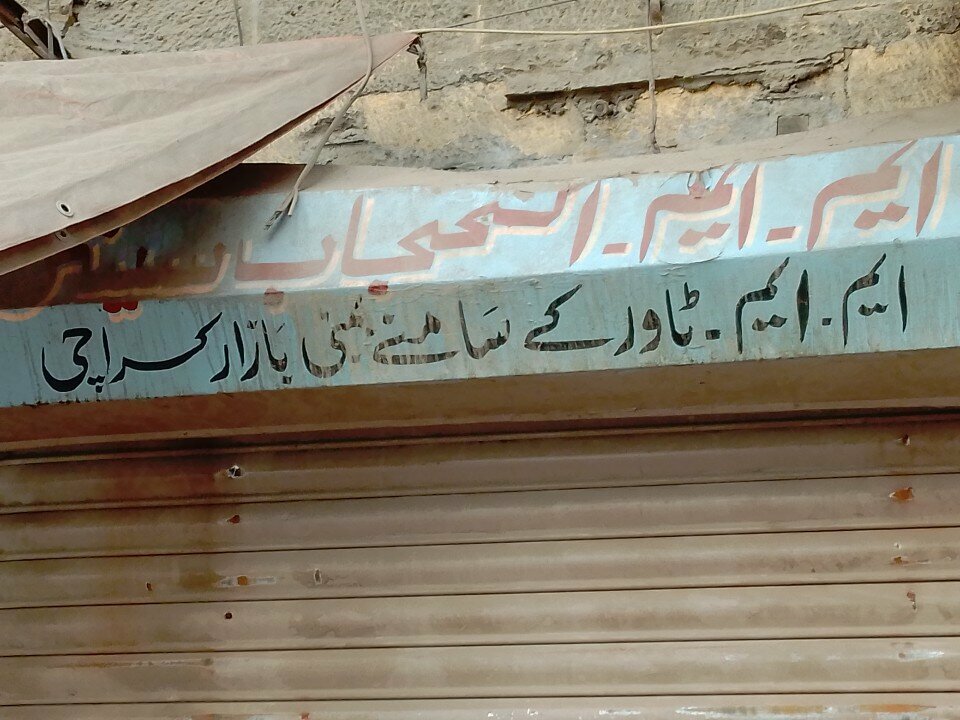 ایم ۔ ایم ۔ الحجاب سینٹر
ایم ۔ ایم ۔ ٹاور کے سامنے بمبئی بازار کراچی